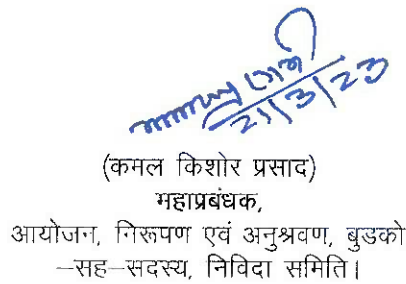 21/3/23
(कमल किशोर प्रसाद)
महाप्रबंधक,
आयोजन, निरूपण एवं अनुश्रवण, बुडको
–सह–सदस्य, निविदा समिति।